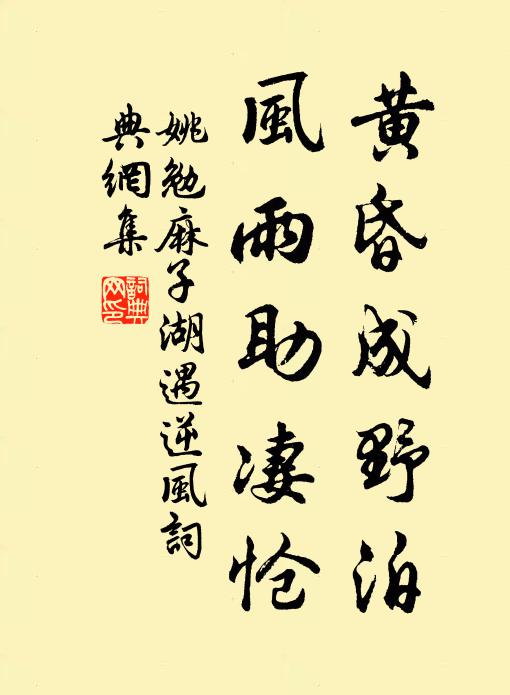 黃昏成野泊
風雨助凄怆
姚勉麻子湖遇逆風詞
典網集
詞典网印